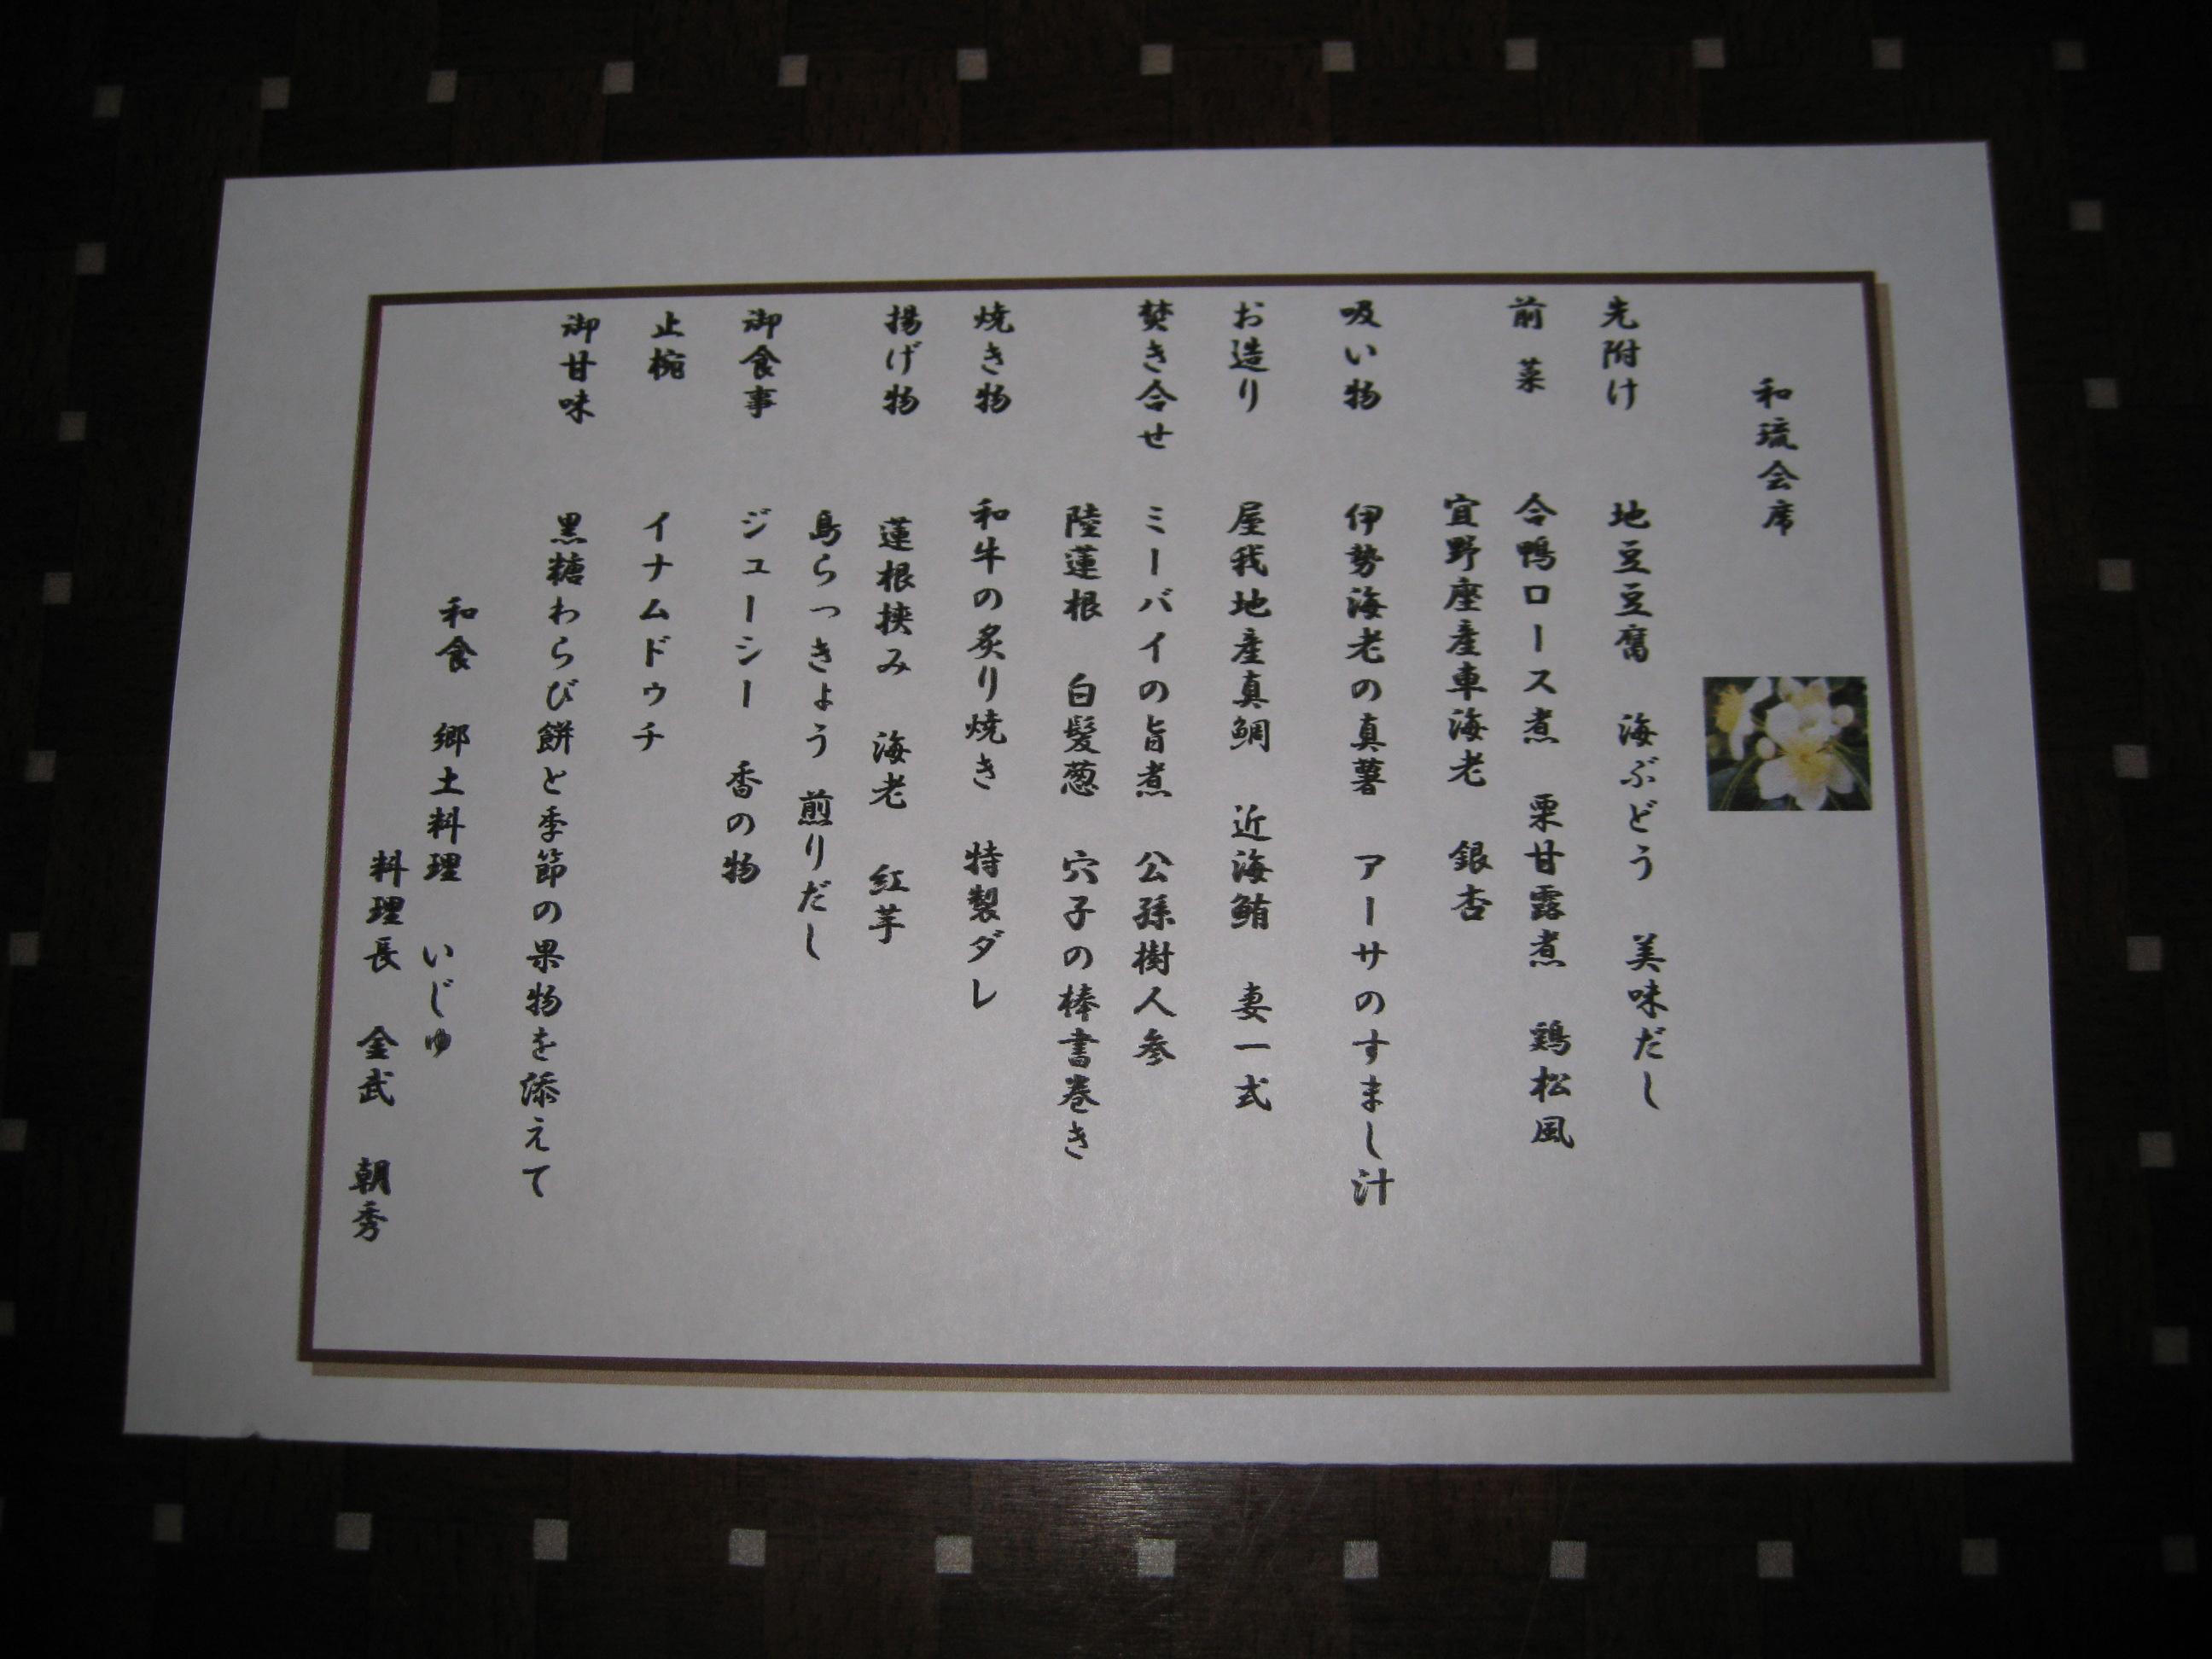 和琉会席
先附け　地豆豆腐　海ぶどう　美味だし
前菜　合鴨ロース煮　栗甘露煮　鶏松風
宜野座産車海老　銀杏
吸い物　伊勢海老の真薯　アーサのすまし汁
お造り　屋我地産真鯛　近海鮪　妻一式
焚き合せ　ミーバイの旨煮　公孫樹人参
陸蓮根　白髪葱　穴子の棒書巻き
焼き物　和牛の炙り焼き　特製ダレ
揚げ物　蓮根挟み　海老　紅芋
島らっきょう　煎りだし
御食事　ジューシー　香の物
止椀　イナムドゥチ
御甘味　黒糖わらび餅と季節の果物を添えて
和食　郷土料理　いじゅ
料理長　金武　朝秀